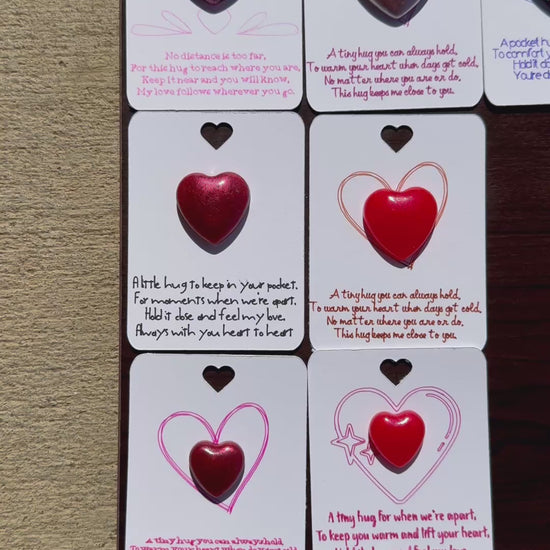 No distance is too far,
For this hug to reach where you are,
Keep it near and you will know,
My love follows wherever you go.
A tiny hug you can always hold,
To warm your heart when days get cold,
No matter where you are or do,
This hug keeps me close to you.
A pocket hu
To comfort y
Hold it clo
You're d
A little hug to keep in your pocket.
For moments when we're apart.
Hold it close and feel my love.
Always with you heart to heart
A tiny hug you can always hold,
To warm your heart when days get cold,
No matter where you are or do,
This hug keeps me close to you.
A tiny hug you can always hold,
A tiny hug for when we're apart,
To keep you warm and lift your heart,